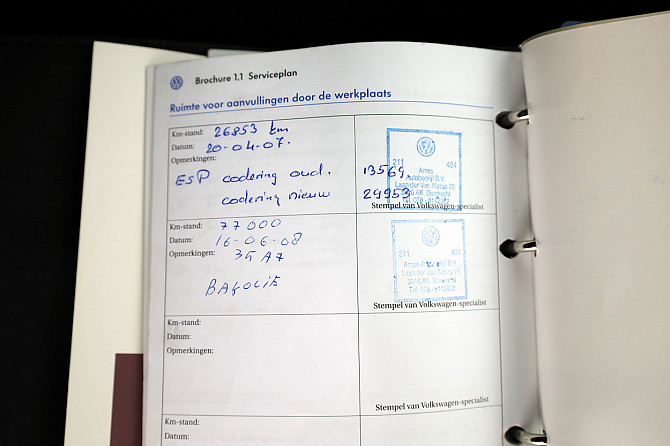 Brochure 1.1 Serviceplan
Ruimte voor aanvullingen door de werkplaats
Km-stand: 26853 km
Datum: 20-04-07.
Opmerkingen:
ESP codering oud. 13569.
codering nieuw 29953
211 404
Ames
Autobedrijf B.V.
Laan der Ver. Naties 75
AK Dordrecht
Tel. 078 -
Stempel van Volkswagen-specialist
Km-stand: 77000
Datum: 16-06-08
Opmerkingen: 35A7
211 404
Ames B.V.
Laan der Ver. Naties 75
3316 AK Dordrecht
Tel. 078 -
Stempel van Volkswagen-specialist
Km-stand:
Datum:
Opmerkingen:
Stempel van Volkswagen-specialist
Km-stand:
Datum: